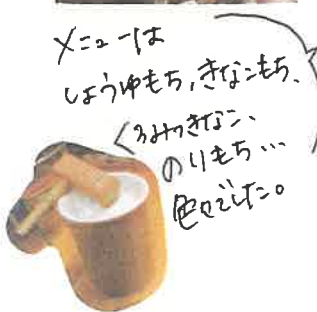 メニューは
しょうゆもち,きなこもち、
くるみきなこ、
のりもち…
色々でした。